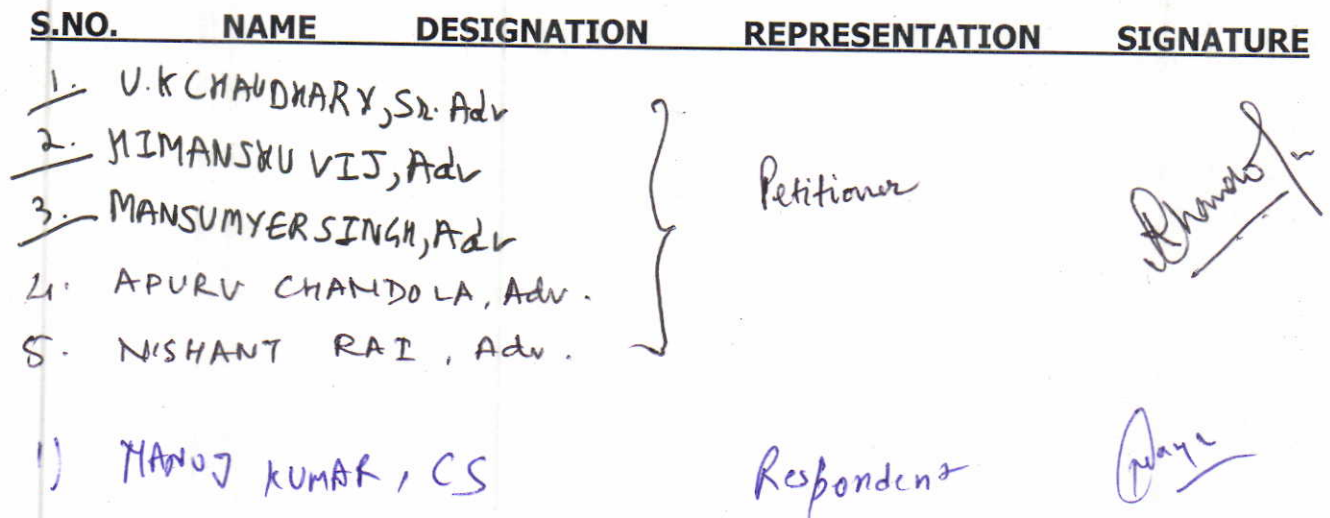 S.NO. NAME DESIGNATION REPRESENTATION SIGNATURE
1. U.K CHAUDHARY, Sr. Adv
2. HIMANSHU VIJ, Adv
3. MANSUMYER SINGH, Adv
Petitioner
4. APURV CHANDOLA, Adv.
5. NISHANT RAI, Adv.
1) MANOJ KUMAR, CS Respondent